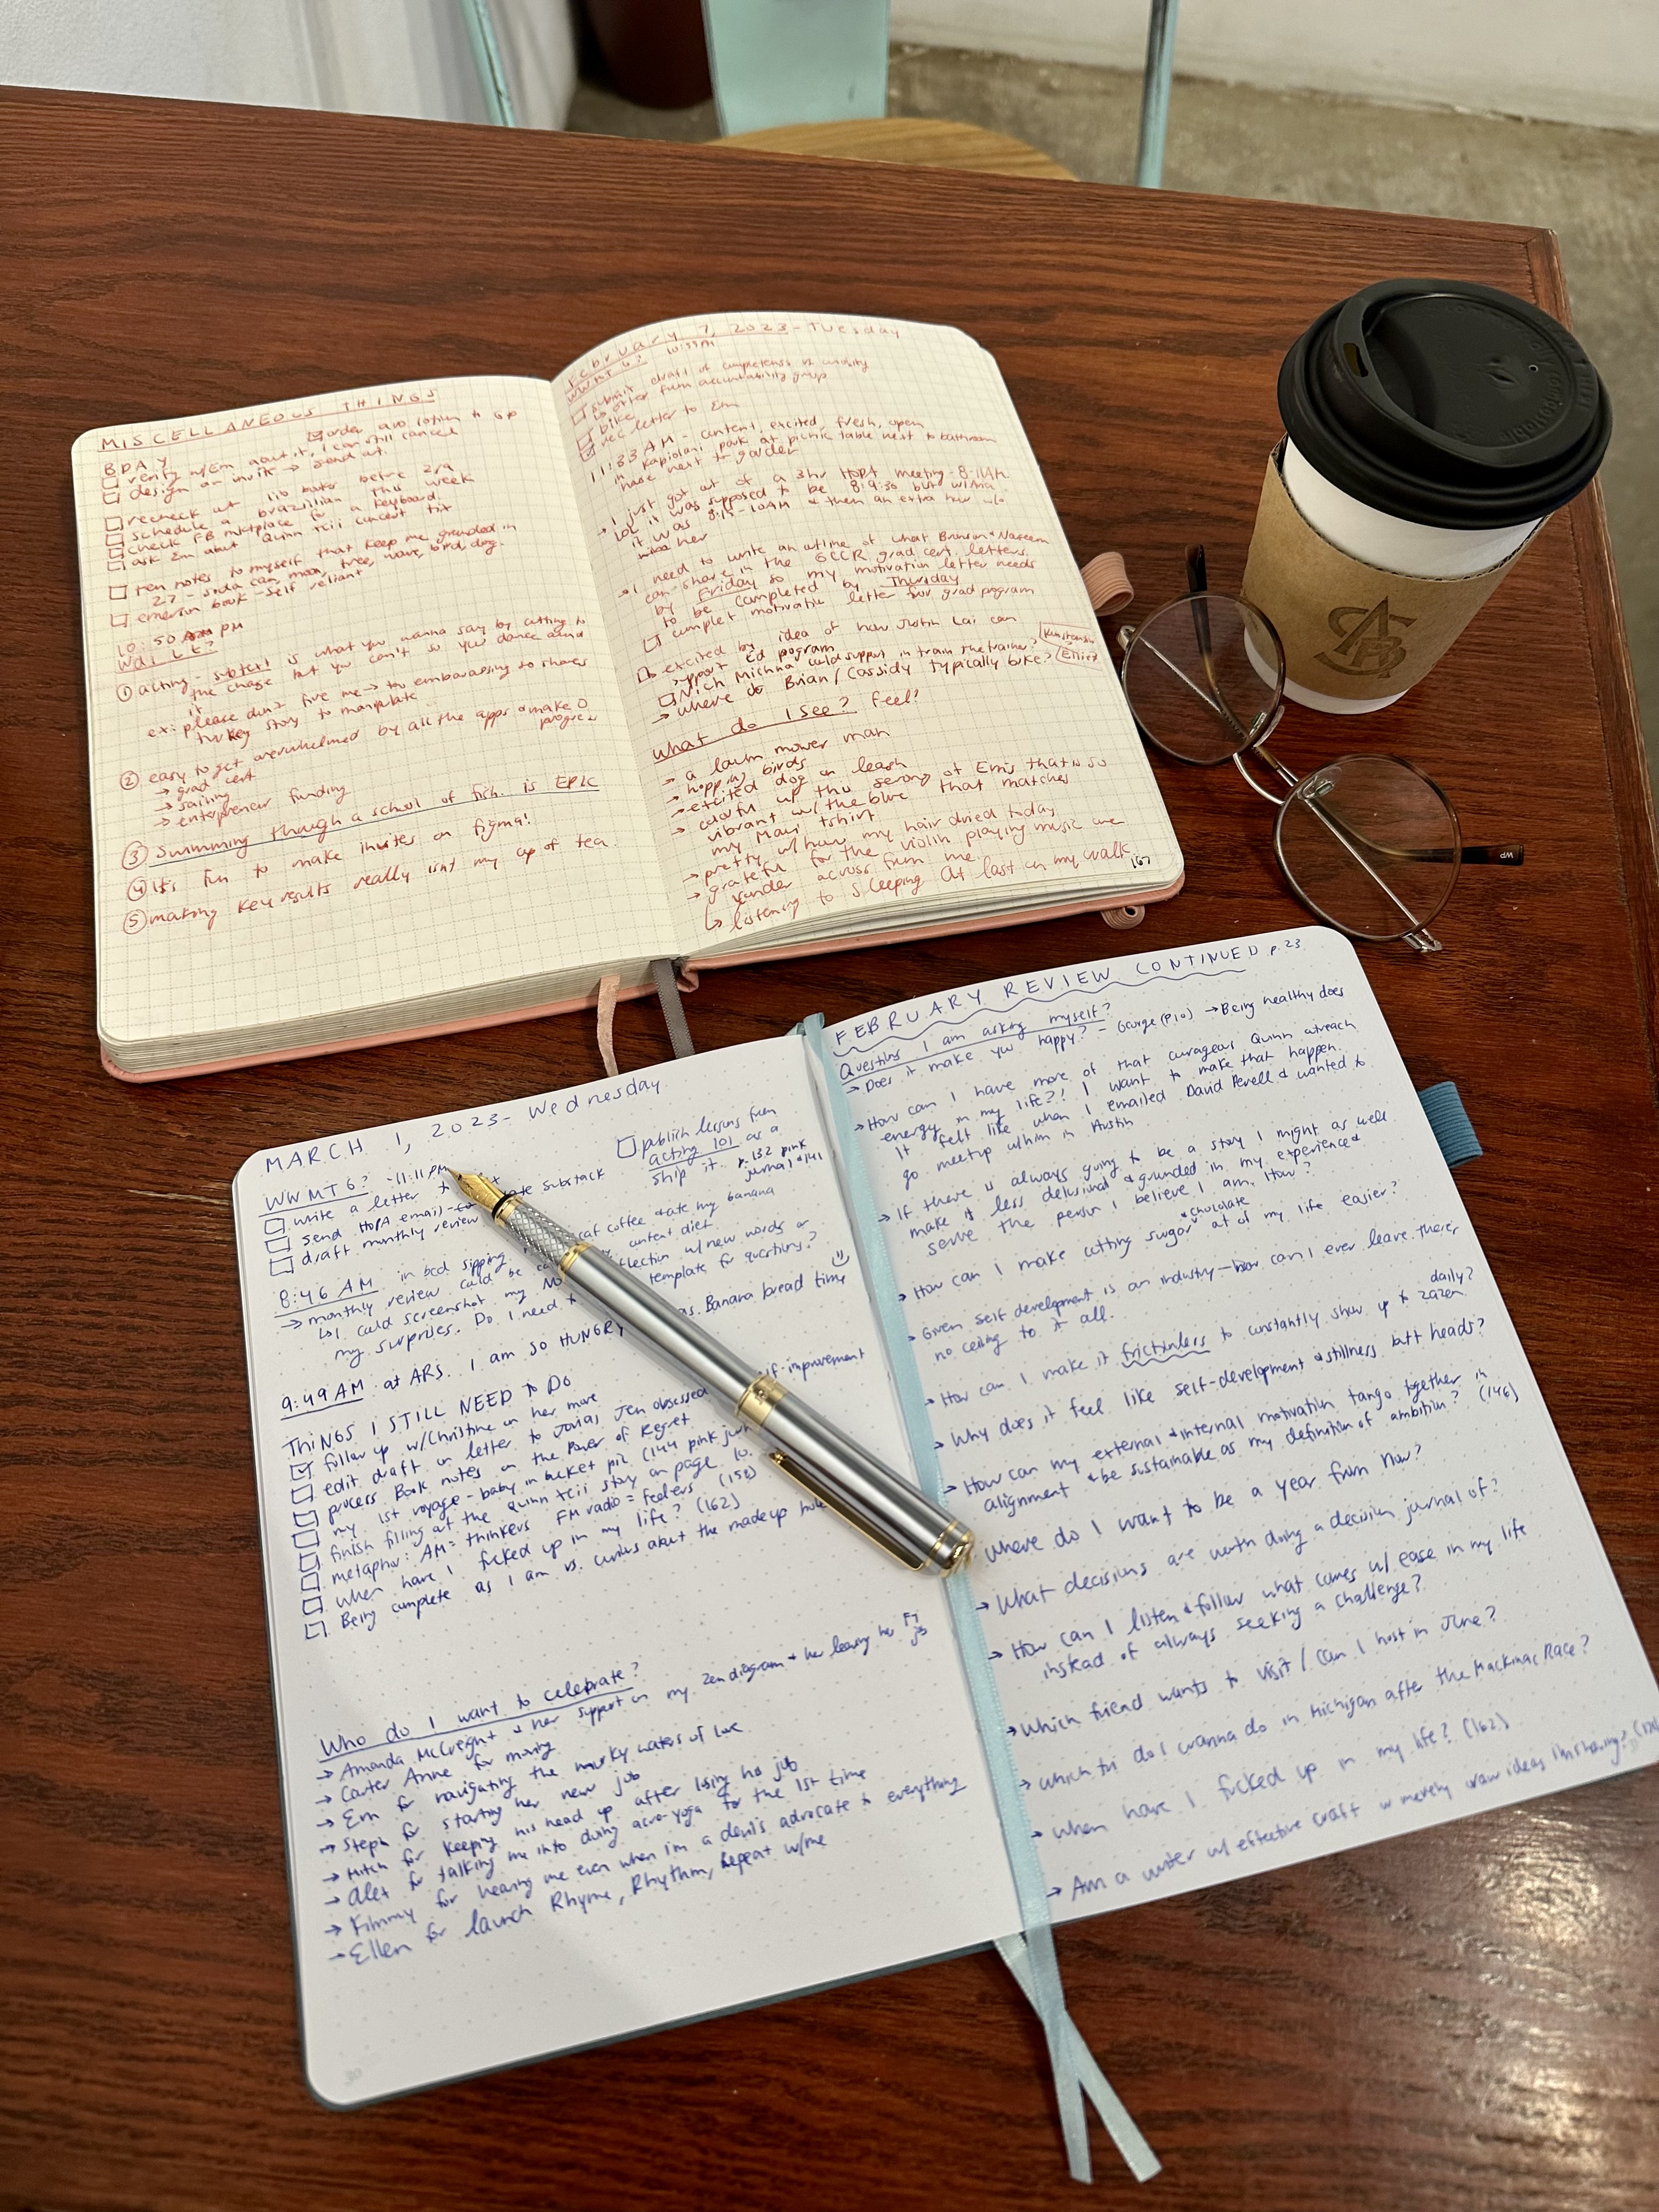 MISCELLANEOUS THINGS
BDAY
order avo lotion to go
verify w/Em about it, I can still cancel
design an invite → send at.
recheck at lib water before 2/9
schedule a brazillian this week
check FB mktplace for a keyboard.
ask Em about Quinn xcii concert tix
ten notes to myself that keep me grounded in
27 - soda can, moon, tree, wave, bird, dog.
emerson book - self reliant
10:50 PM
①acting - subtext is what you wanna say by cutting to
the chase but you can't so you dance around
it
ex: please don't fire me → too embarassing to share
turkey story to manipulate
② easy to get overwhelmed by all the apps & make 0
progress
→ grad cert
→ sailing
→ enterpreneur funding
③ Swimming through a school of fish is EPIC
④ It's fun to make invites on figma!
⑤ making key results really isn't my cup of tea.
February 7, 2023 - Tuesday
WWMT6? 10:55PM
submit draft of completeness vs curiosity
→ after from accountability group
bike
rec letter to Em
11:33 AM - content, excited, fresh, open
in Kapiolani park at picnic table next to bathroom
next to garden
→ I just got out of a 3hr HOPA meeting - 8-11AM.
LOL it was supposed to be 8-9:30 but
it was 8:15-10AM & then an extra hour w/o
her
→ I need to write an outline of what Branson & Nateem
can share in the GCCR grad cert, letters
by Friday so my motivation letter needs
to be completed by Thursday
complet motivatin letter for grad program
excited by idea of how Justin Lai can
support Ed program
Nich Michna could support in train the trainer?
→ where do Brian/Cassidy typically bike?
Elliot
What do I see? Feel?
→ a lawn mower man
→ hopping birds
→ excited dog on leash
→ colorful up thu serong of Em's that is so
vibrant w/the blue that matches
my Maui tshirt
→ pretty w/how my hair dried today
→ grateful for the violin playing music me
yonder across from me.
↳ listening to Sleeping At last on my walk.
167
MARCH 1, 2023 - Wednesday
WWMT6? -11:11 PM
write a letter
substack
send HOPA email
draft monthly review
publish lessons from
acting 101 as a
ship it. p.132 pink
journal & 141
8:46 AM in bed sipping
coffee & ate my banana
→ monthly review could be
reflection w/new words or
↳ I could screenshot my
content diet
my surprises. Do I need
template for questions?
9:49 AM at ARS. I am so HUNGRY
Banana bread time
THINGS I STILL NEED TO DO
follow up w/Christine on her move
edit draft on letter to Jonas, Jen obsessed
self-improvement
process Book notes on the Power of Regret
my 1st voyage - baby in bucket pic (144 pink
finish filling at the quinn xcii story on page 10.
metaphor: AM = thinkers FM radio = feelers (158)
when have I fucked up in my life? (162)
Being complete as I am vs. curious about the madeup hole
Who do I want to celebrate?
→ Amanda McCreight & her support on my Zen diagram & her leaving her FT
job
→ Carter Anne for moving
→ Em for navigating the murky waters of love
→ Steph for starting her new job
→ Mitch for keeping his head up after losing his job
→ Alex for talking me into doing acro-yoga for the 1st time
→ Kimmy for hearing me even when I'm a devil's advocate to everything
→ Ellen for launch Rhyme, Rhythm, Repeat w/me
30
FEBRUARY REVIEW CONTINUED p.23
Questions I am asking myself?
→ Does it make you happy? - George (P10) → Being healthy does
→ How can I have more of that courageous Quinn outreach
energy in my life?! I want to make that happen.
It felt like when I emailed David Perell & wanted to
go meetup w/him in Austin
→ If there is always going to be a story I might as well
make it less delusional & grounded in my experience &
serve the person I believe I am. How?
& chocolate
→ How can I make cutting sugar out of my life easier?
→ Given self development is an industry - how can I ever leave. There's
no ceiling to it all.
daily?
→ How can I make it frictionless to constantly show up to zazen
→ Why does it feel like self-development & stillness butt heads?
→ How can my external & internal motivation tango together in
alignment & be sustainable as my definition of ambition? (146)
→ Where do I want to be a year from now?
→ What decisions are worth doing a decision journal of?
→ How can I listen & follow what comes w/ ease in my life
instead of always seeking a challenge?
→ Which friend wants to visit / can I host in June?
→ Which tri do I wanna do in Michigan after the Mackinac Race?
→ When have I fucked up in my life? (162)
→ Am a writer w/ effective craft or merely
ideas I'm sharing?
WP